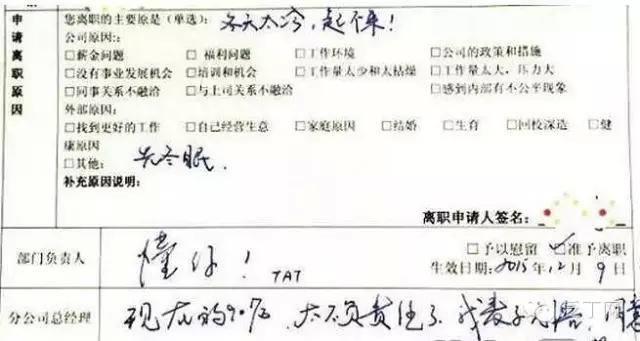 申请离职原因
您离职的主要原是(单选): 冬天太冷,起不来!
公司原因::
□薪金问题 □福利问题 □工作环境 □公司的政策和措施
□没有事业发展机会 □培训和机会 □工作量太少和太枯燥 □工作量太大,压力大
□同事关系不融洽 □与上司关系不融洽 □感到内部有不公平现象
外部原因:
□找到更好的工作 □自己经营生意 □家庭原因 □结婚 □生育 □回校深造 □健
康原因
□其他: 先冬眠.
补充原因说明:
离职申请人签名:
部门负责人 懂你! TAT □予以慰留 准予离职
生效日期:2015年12月9日
分公司总经理 现在的90后,太不负责任了.我表示无语,同意